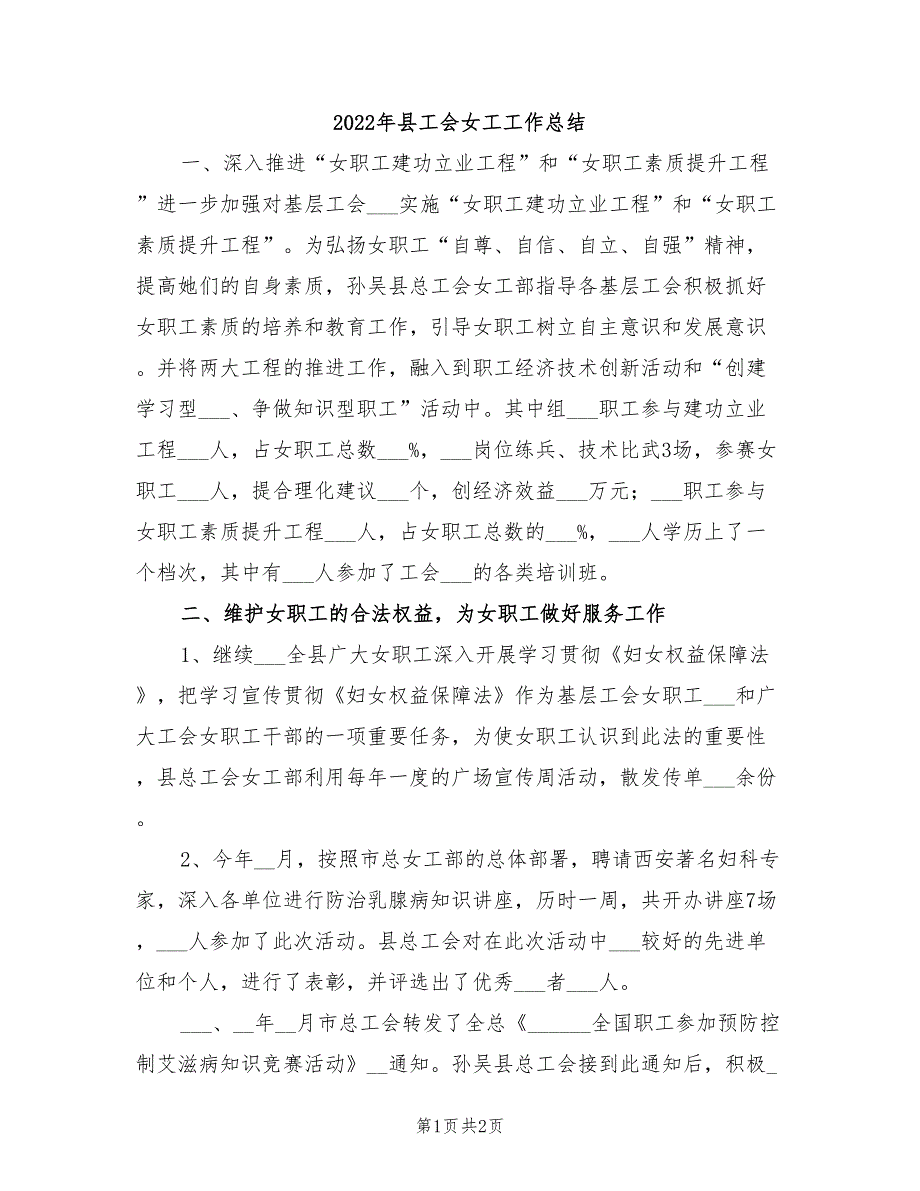 2022年县工会女工工作总结
一、深入推进“女职工建功立业工程”和“女职工素质提升工程
”进一步加强对基层工会___实施“女职工建功立业工程”和“女职工
素质提升工程”。为弘扬女职工“自尊、自信、自立、自强”精神，
提高她们的自身素质，孙吴县总工会女工部指导各基层工会积极抓好
女职工素质的培养和教育工作，引导女职工树立自主意识和发展意识
。并将两大工程的推进工作，融入到职工经济技术创新活动和“创建
学习型___、争做知识型职工”活动中。其中组___职工参与建功立业
工程___人，占女职工总数___%，___岗位练兵、技术比武3场，参赛女
职工___人，提合理化建议___个，创经济效益___万元；___职工参与
女职工素质提升工程___人，占女职工总数的___%，___人学历上了一
个档次，其中有___人参加了工会___的各类培训班。
二、维护女职工的合法权益，为女职工做好服务工作
1、继续___全县广大女职工深入开展学习贯彻《妇女权益保障法
》，把学习宣传贯彻《妇女权益保障法》作为基层工会女职工___和广
大工会女职工干部的一项重要任务，为使女职工认识到此法的重要性
，县总工会女工部利用每年一度的广场宣传周活动，散发传单___余份
。
2、今年__月，按照市总女工部的总体部署，聘请西安著名妇科专
家，深入各单位进行防治乳腺病知识讲座，历时一周，共开办讲座7场
，___人参加了此次活动。县总工会对在此次活动中___较好的先进单
位和个人，进行了表彰，并评选出了优秀___者___人。
___、__年__月市总工会转发了全总《______全国职工参加预防控
制艾滋病知识竞赛活动》__通知。孙吴县总工会接到此通知后，积极_
第1页共2页